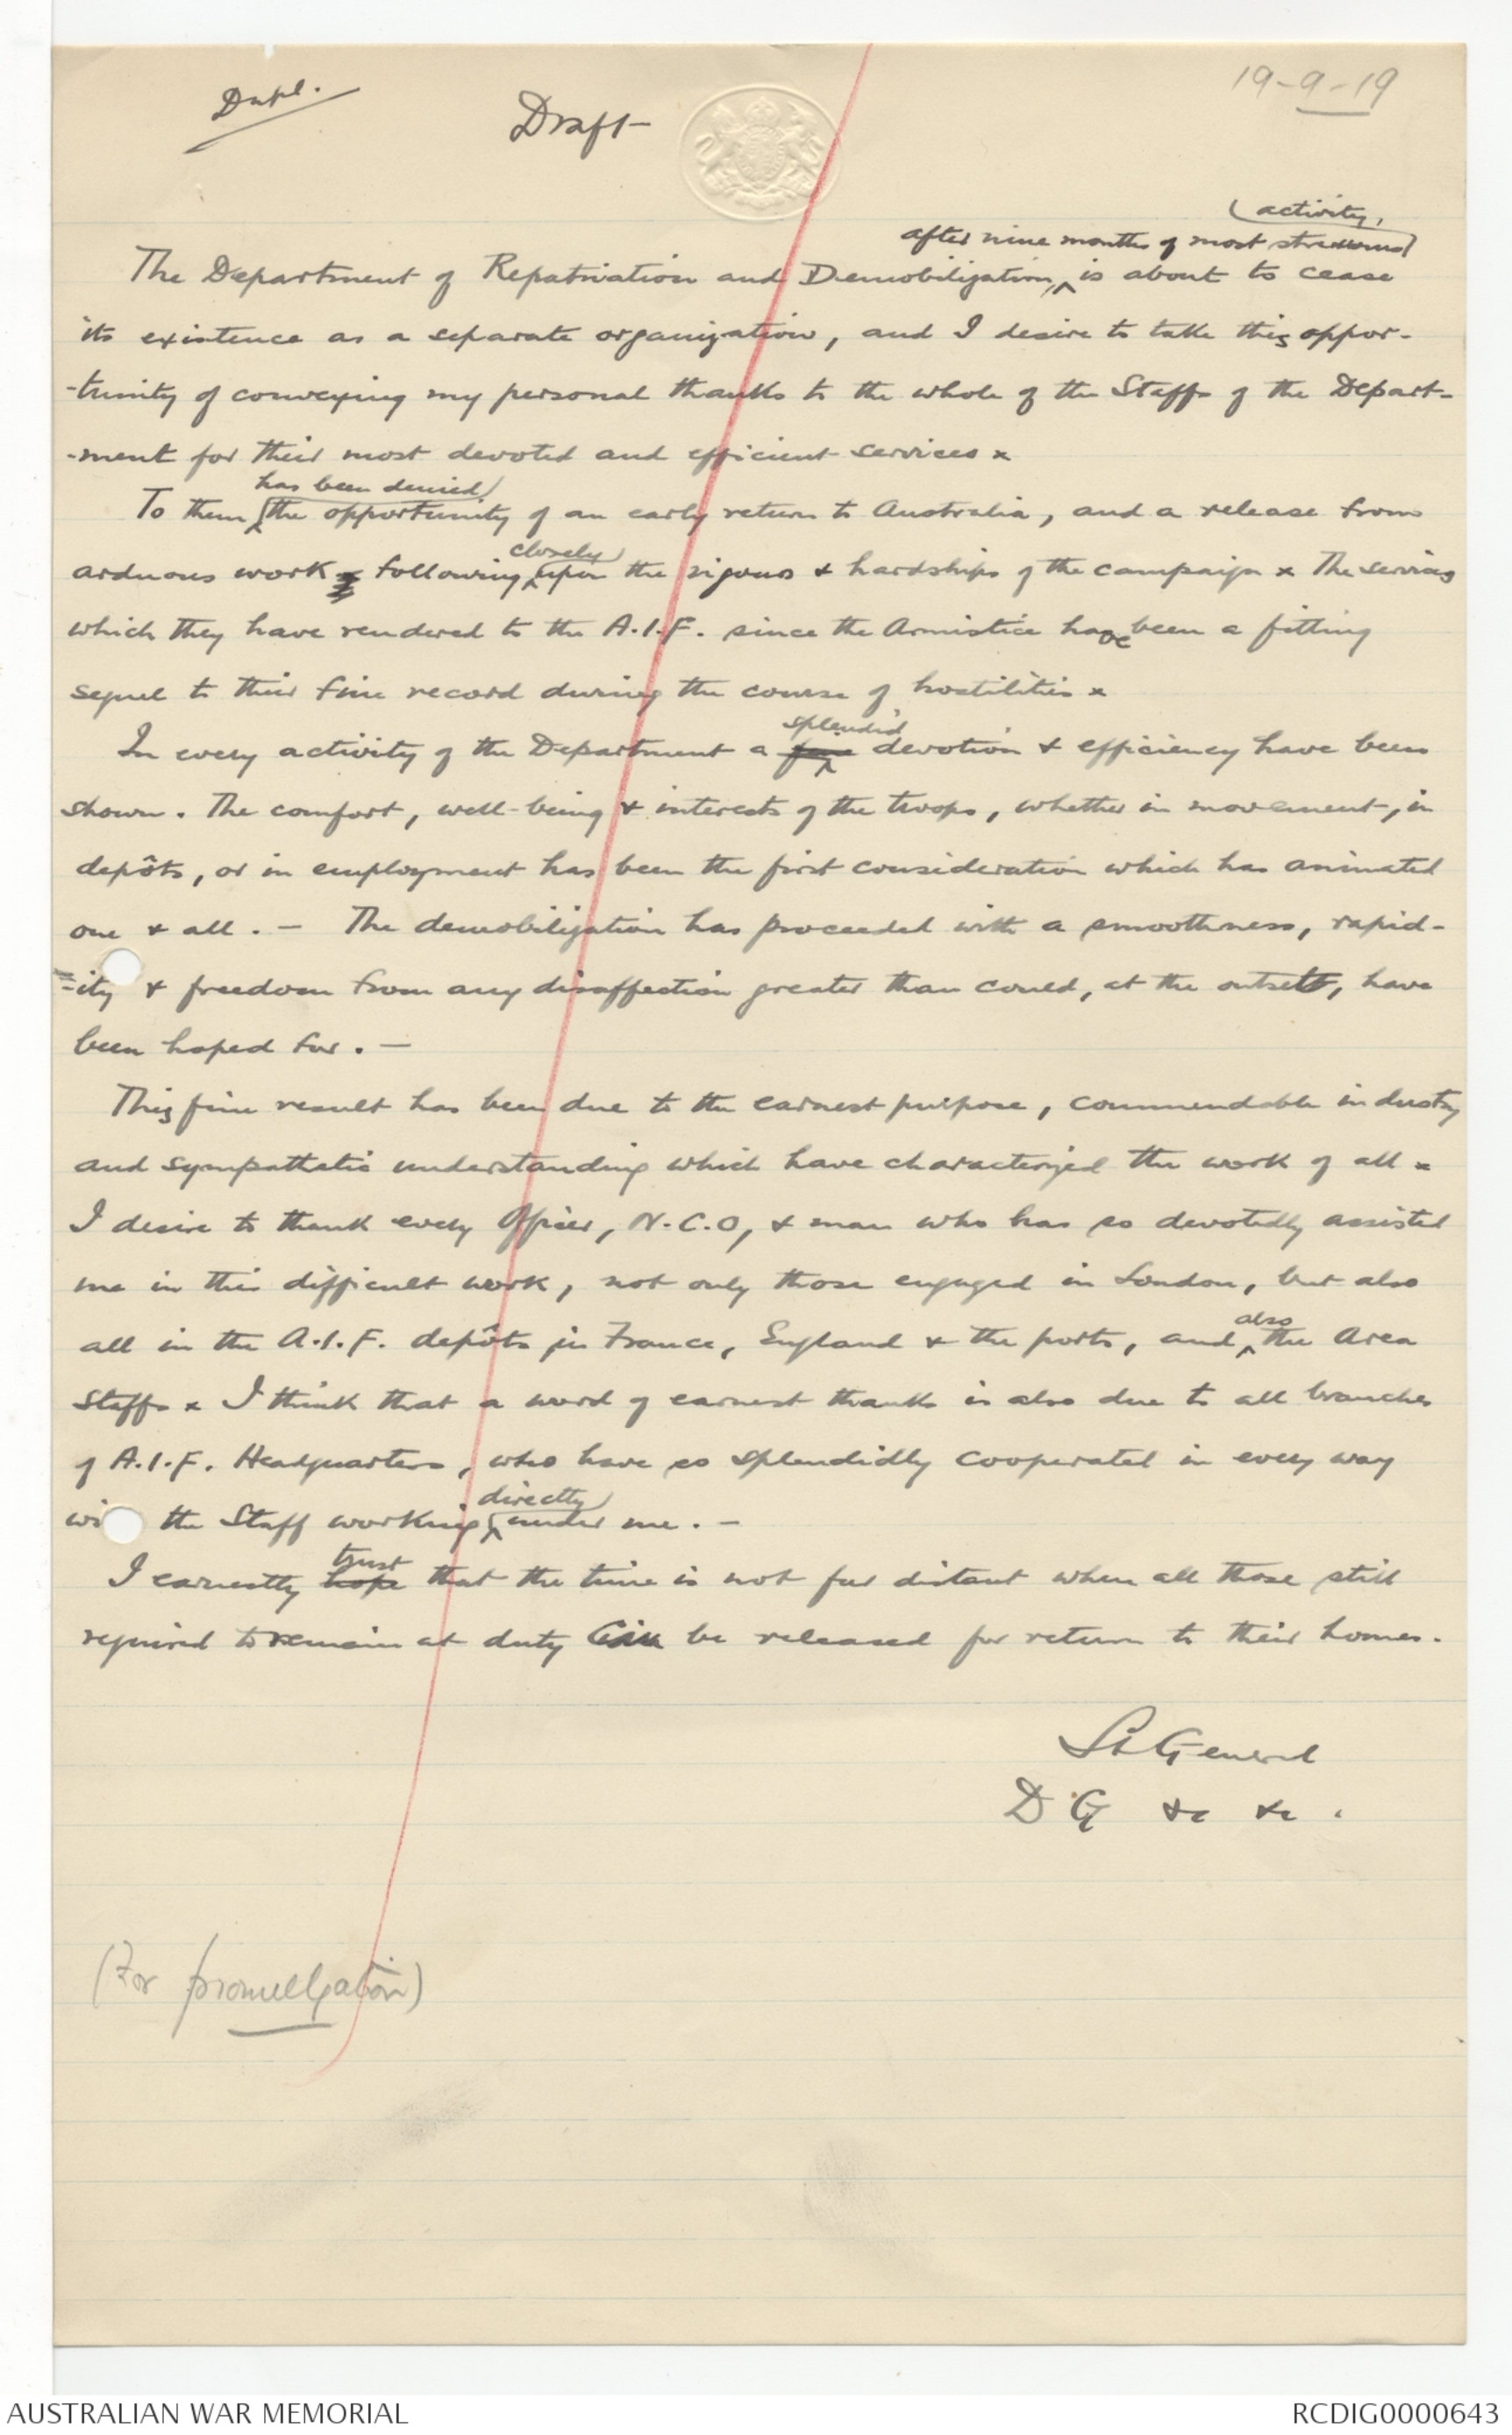 Dupl.
Draft
19-9-19
activity,
after nine months of most strenuous
The Department of Repatriation and Demobilization, is about to cease
its existence as a separate organization, and I desire to take this oppor-
-tunity of conveying my personal thanks to the whole of the Staffs of the Depart-
-ment for their most devoted and efficient services x
has been denied
To them the opportunity of an early return to Australia, and a release from
closely
arduous work following upon the rigours & hardships of the campaign x The services
which they have rendered to the A.I.F. since the Armistice have been a fitting
sequel to their fine record during the course of hostilities x
splendid
In every activity of the Department a devotion & efficiency have been
shown. The comfort, well-being & interests of the troops, whether in movement, in
depôts, or in employment has been the first consideration which has animated
one & all. - The demobilization has proceeded with a smoothness, rapid-
-ity & freedom from any disaffection greater than could, at the outset, have
been hoped for. -
This fine result has been due to the earnest purpose, commendable industry
and sympathetic understanding which have characterized the work of all x
I desire to thank every Officer, N.C.O, & man who has so devotedly assisted
me in this difficult work, not only those engaged in London, but also
also
all in the A.I.F. depôts in France, England & the ports, and the Area
Staffs x I think that a word of earnest thanks is also due to all branches
of A.I.F. Headquarters, who have so splendidly cooperated in every way
directly
wi the Staff working under me. -
trust
I earnestly hope that the time is not far distant when all those still
required to remain at duty can be released for return to their homes.
Lt General
D G &c &c.
(For promulgation)
AUSTRALIAN WAR MEMORIAL
RCDIG0000643